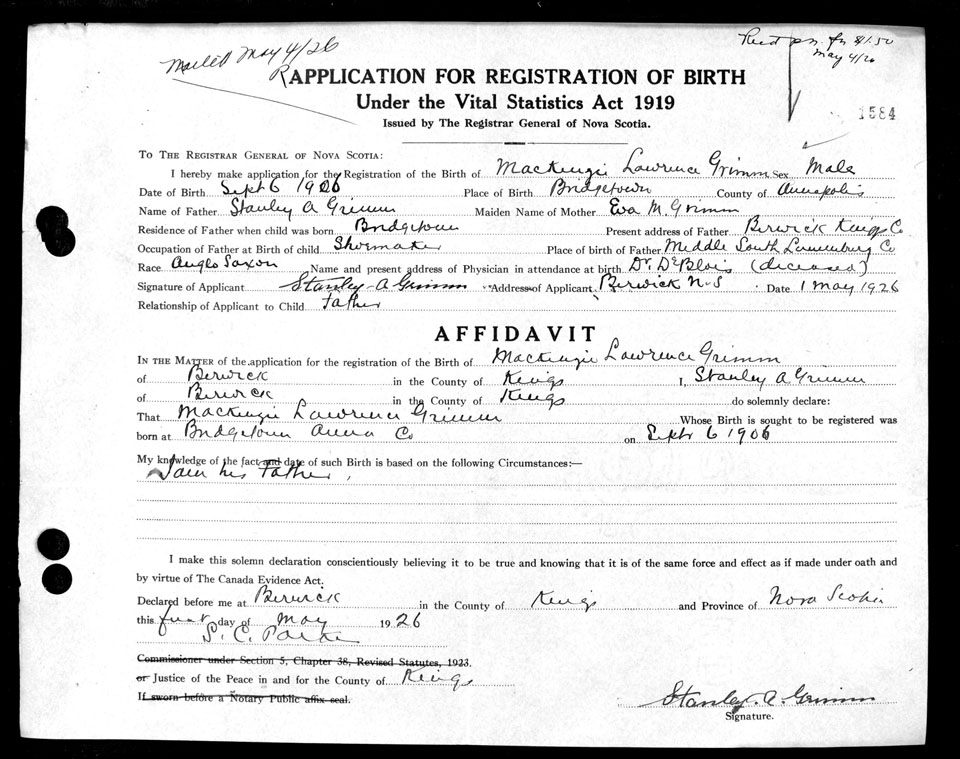 Mailed May 4/26
Recd pn. fr $1.50
May 4/26
APPLICATION FOR REGISTRATION OF BIRTH
Under the Vital Statistics Act 1919
1584
Issued by The Registrar General of Nova Scotia.
TO THE REGISTRAR GENERAL OF NOVA SCOTIA:
I hereby make application for the Registration of the Birth of MacKenzie Lawrence Grimm Sex Male
Date of Birth Sept 6 1906 Place of Birth Bridgetown County of Annapolis
Name of Father Stanley A Grimm Maiden Name of Mother Eva M. Grimm
Residence of Father when child was born Bridgetown Present address of Father Berwick Kings Co
Occupation of Father at Birth of child Shoemaker Place of birth of Father Middle South Lunenburg Co
Race Anglo Saxon Name and present address of Physician in attendance at birth Dr. DeBlois (deceased)
Signature of Applicant Stanley A Grimm Address of Applicant Berwick N-S Date 1 May 1926
Relationship of Applicant to Child Father
AFFIDAVIT
IN THE MATTER of the application for the registration of the Birth of MacKenzie Lawrence Grimm
of Berwick in the County of Kings I, Stanley A Grimm
of Berwick in the County of Kings do solemnly declare:
That MacKenzie Lawrence Grimm Whose Birth is sought to be registered was
born at Bridgetown Anna Co on Sept 6 1906
My knowledge of the fact and date of such Birth is based on the following Circumstances:—
I am his Father.
I make this solemn declaration conscientiously believing it to be true and knowing that it is of the same force and effect as if made under oath and
by virtue of The Canada Evidence Act.
Declared before me at Berwick in the County of Kings and Province of Nova Scotia
this first day of May 1926
S. C. Parker
Commissioner under Section 5, Chapter 38, Revised Statutes, 1923.
or Justice of the Peace in and for the County of Kings
If sworn before a Notary Public affix seal.
Stanley. A. Grimm
Signature.